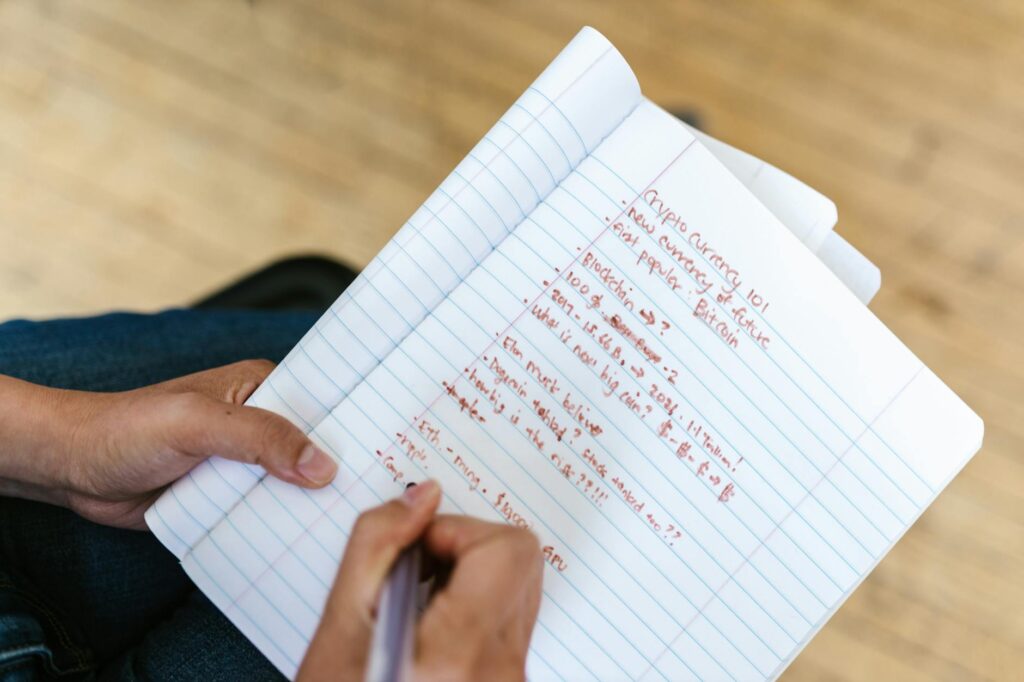 Cryptocurrency 101
- new currency of future
- first popular : Bitcoin
- Blockchain → ?
- 100 of
- 2017 - 15.66 B. → 2021 : 1.1 Trillion!
- What is now big coin?
- Elon musk believer
- Dogecoin tanked? stock tanked too??
- how big is the risk??!!!
- Eth. - mining.
GPU
- ripple.